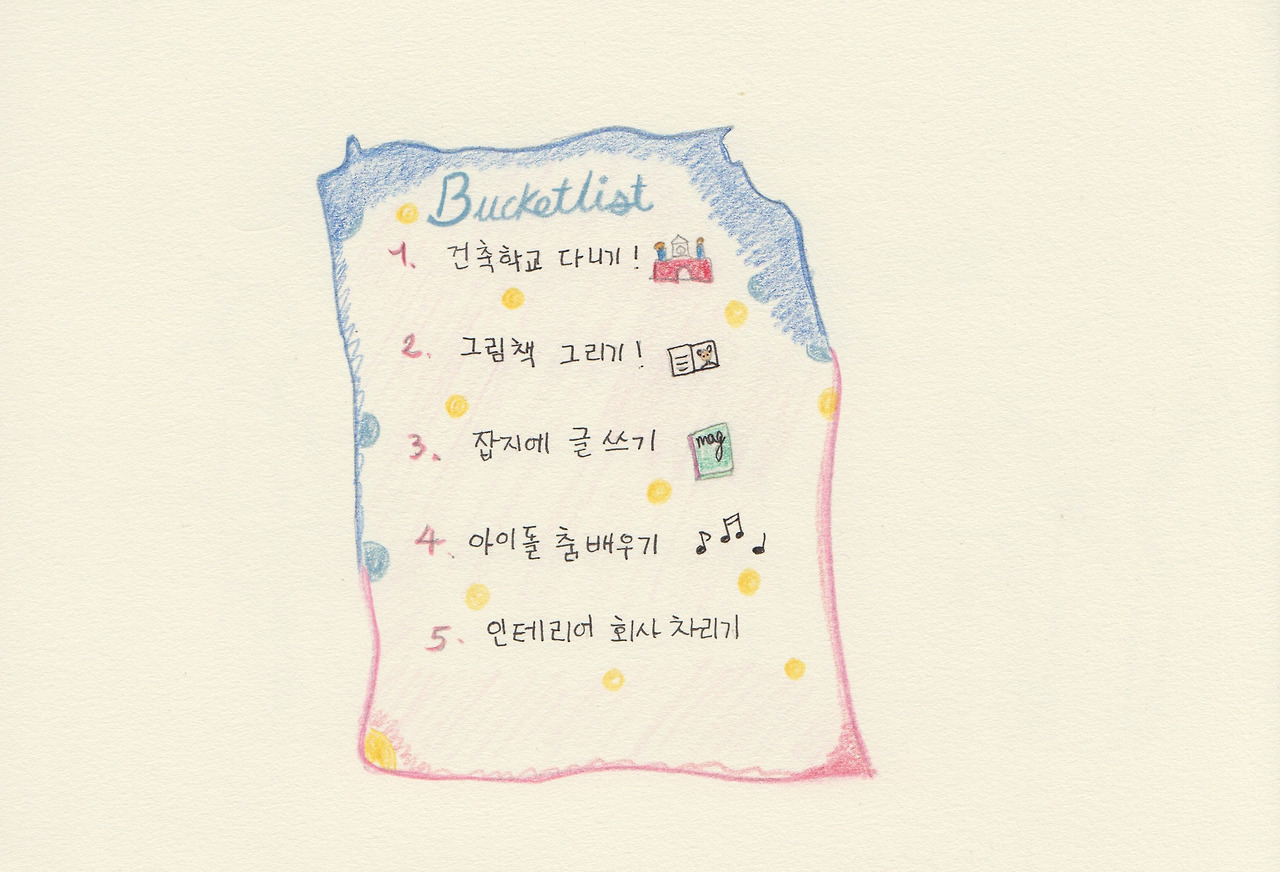 Bucketlist
1.건축학교 다니기!
2. 그림책 그리기!
3. 잡지에 글 쓰기
mag
4. 아이돌 춤 배우기
5. 인테리어 회사 차리기